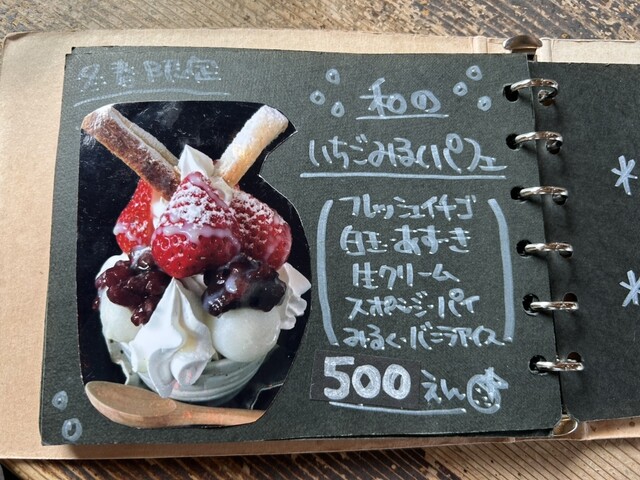 限定
和の
いちごみるくパフェ
フレッシュイチゴ
白玉・あずき
生クリーム
スポンジ・パイ
みるく・バニラアイス
500えん